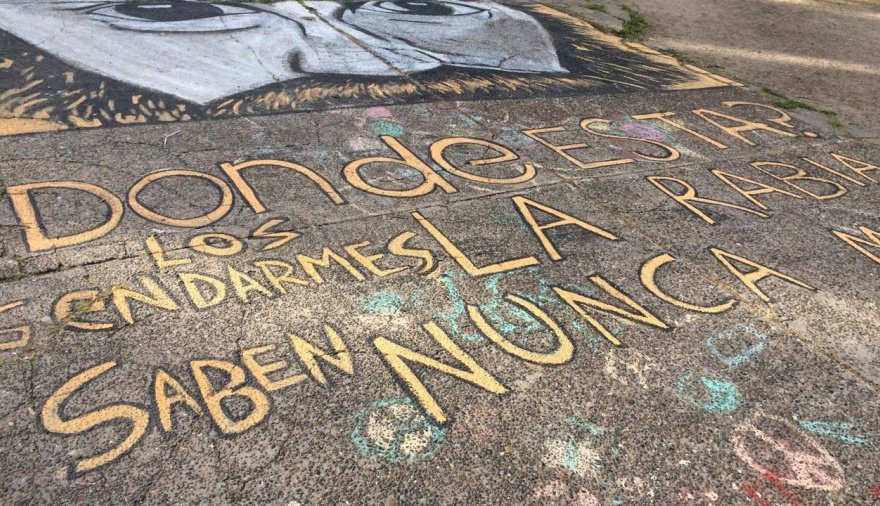 Donde ESTA?
LOS
GENDARMES LA RABIA
SABEN NUNCA